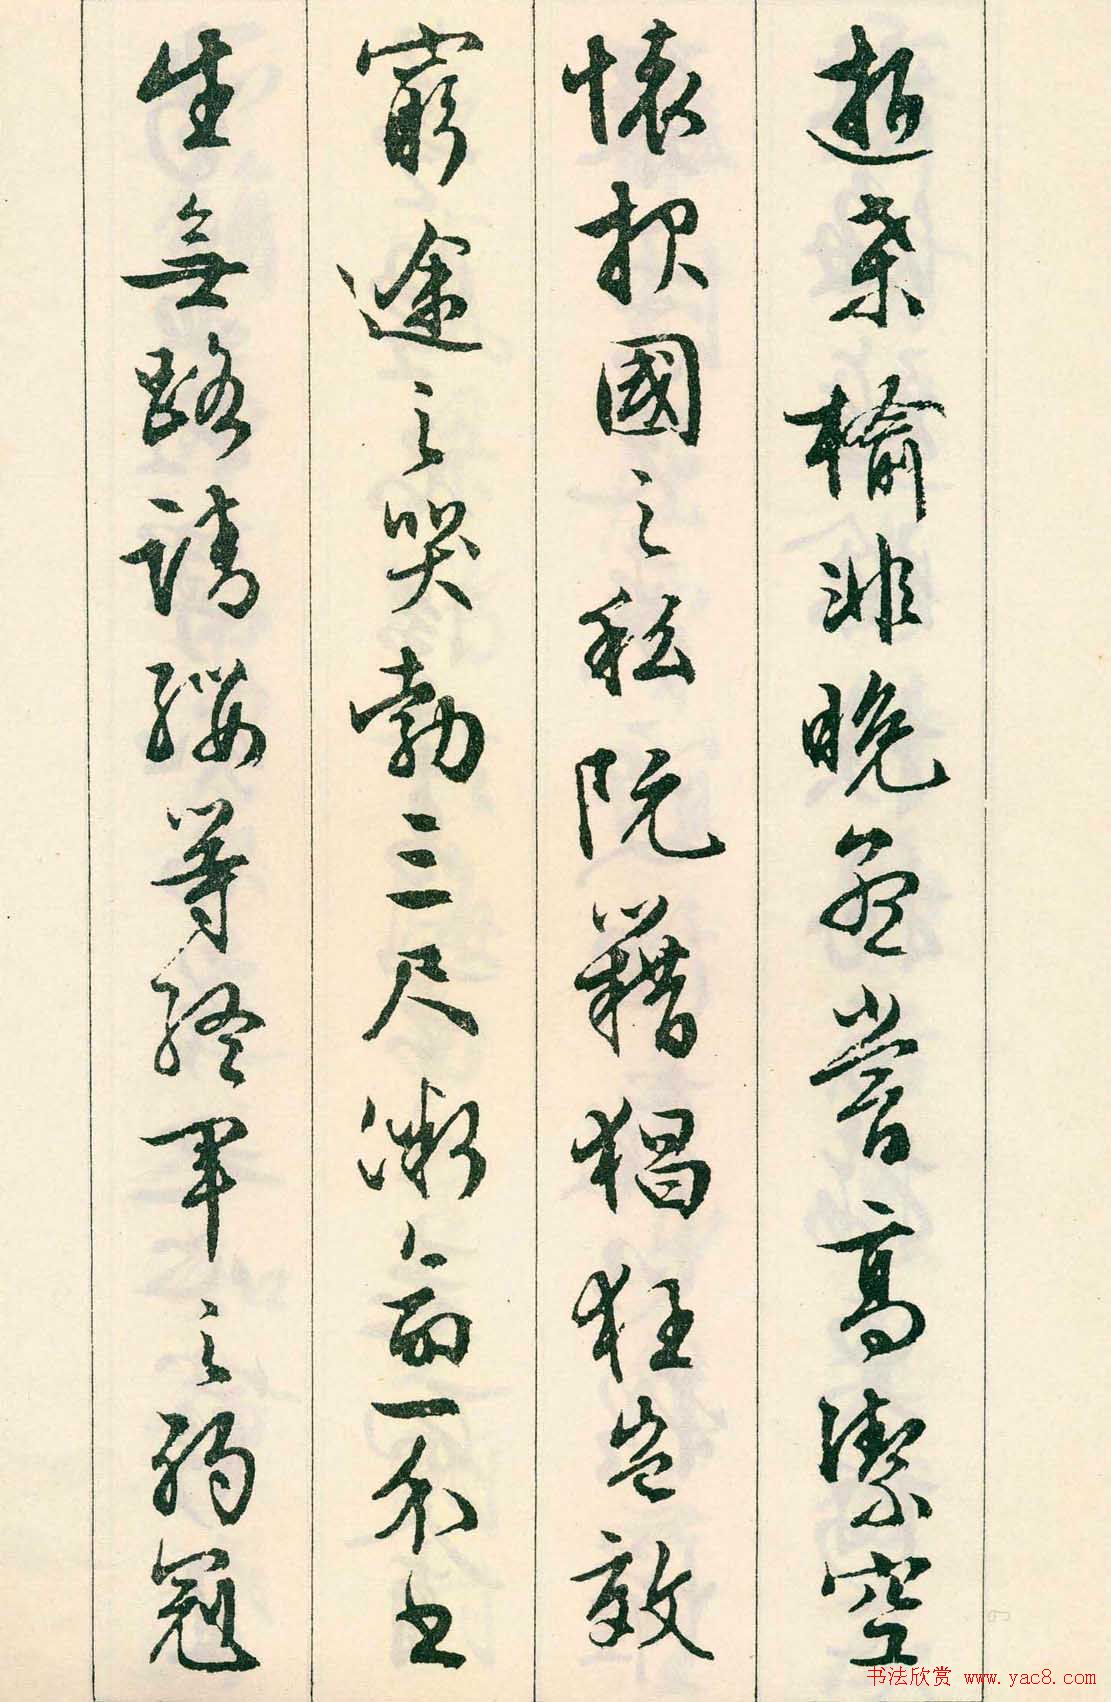 逝桑榆非晚孟嘗高潔空
懷报國之私阮籍猖狂豈效
窮途之哭勃三尺微命一介书
生無路請纓等終軍之弱冠
书法欣赏 www.yac8.com